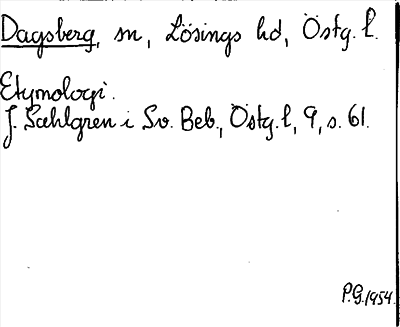 Dagsberg, sn, Lösings hd, Östg. l.
Etymologi.
J. Sahlgren i Sv. Beb., Östg. l, 9, s. 61.
P.G. 1954.